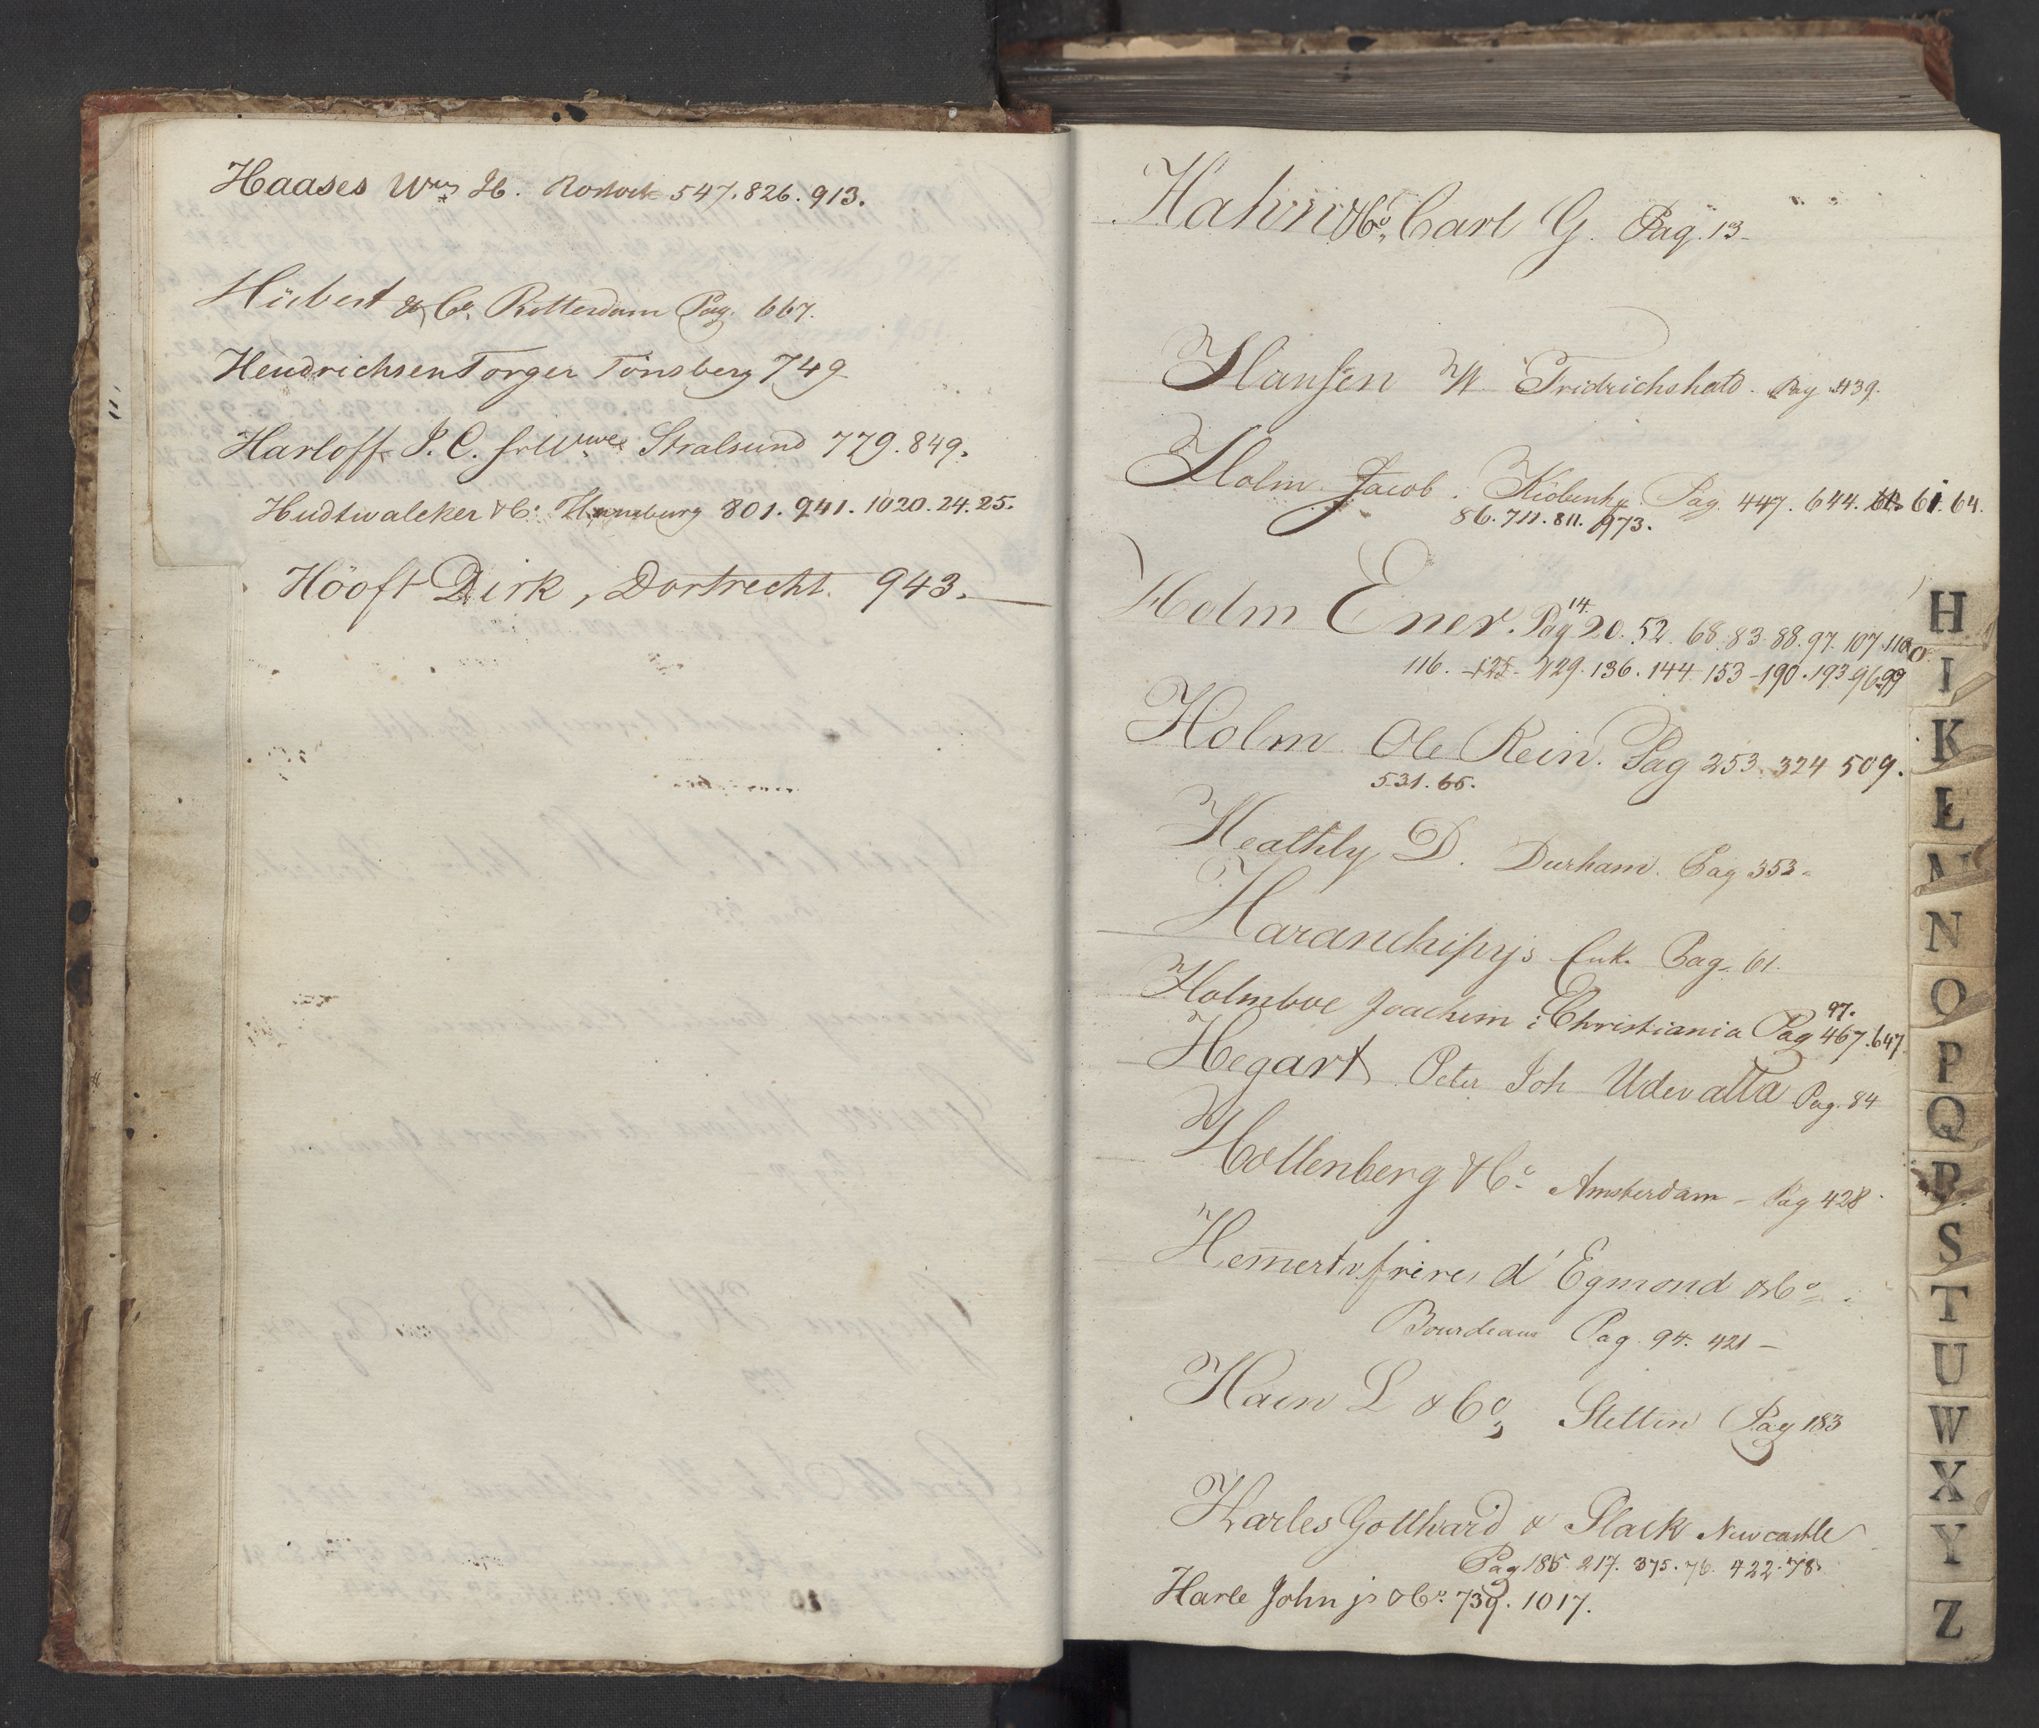 Haases Wm H. Rostock 547. 826. 913.
Hübert & Co. Rotterdam Pag. 667.
Hendrichsen Torger Tönsberg 749
Harloff J. C. Stralsund 779. 849.
Hudtwalcker & Co Hamburg 801. 941. 1020. 24. 25.
Höoft Dirk, Dortrecht. 943.
Hahn & Co, Carl G. Pag. 13
Hansen W Fridrichshald. Pag 439.
Holm Jacob i Kiöbenh Pag. 447. 644. 61. 64.
86. 711. 811. 973.
Holm Ener. Pag 14. 20. 52. 68. 83. 88. 97. 107. 110
116. 125 129. 136. 144. 153 - 190. 193 96. 99
Holm Ole Rein. Pag 253. 324 509.
531. 65.
Heathly D. Durham. Pag 353
Pag. 61.
Holmboe Joachim i Christiania Pag 467. 97. 647.
Hegart Peter Joh Udevalla Pag. 84
Hollenberg & Co Amsterdam - Pag 428
Hemert frires d'Egmond & Co i
Bourdeaux Pag. 94. 421 -
Hain L & Co, Stettin Pag 183
Harles Gotthard & Plack Newcastle
Pag 185. 217. 375. 76. 422. 78.
Harle John js & Co. 739. 1017.
H
I
K
L
M
N
O
P
Q
R
S
T
U
W
X
Y
Z